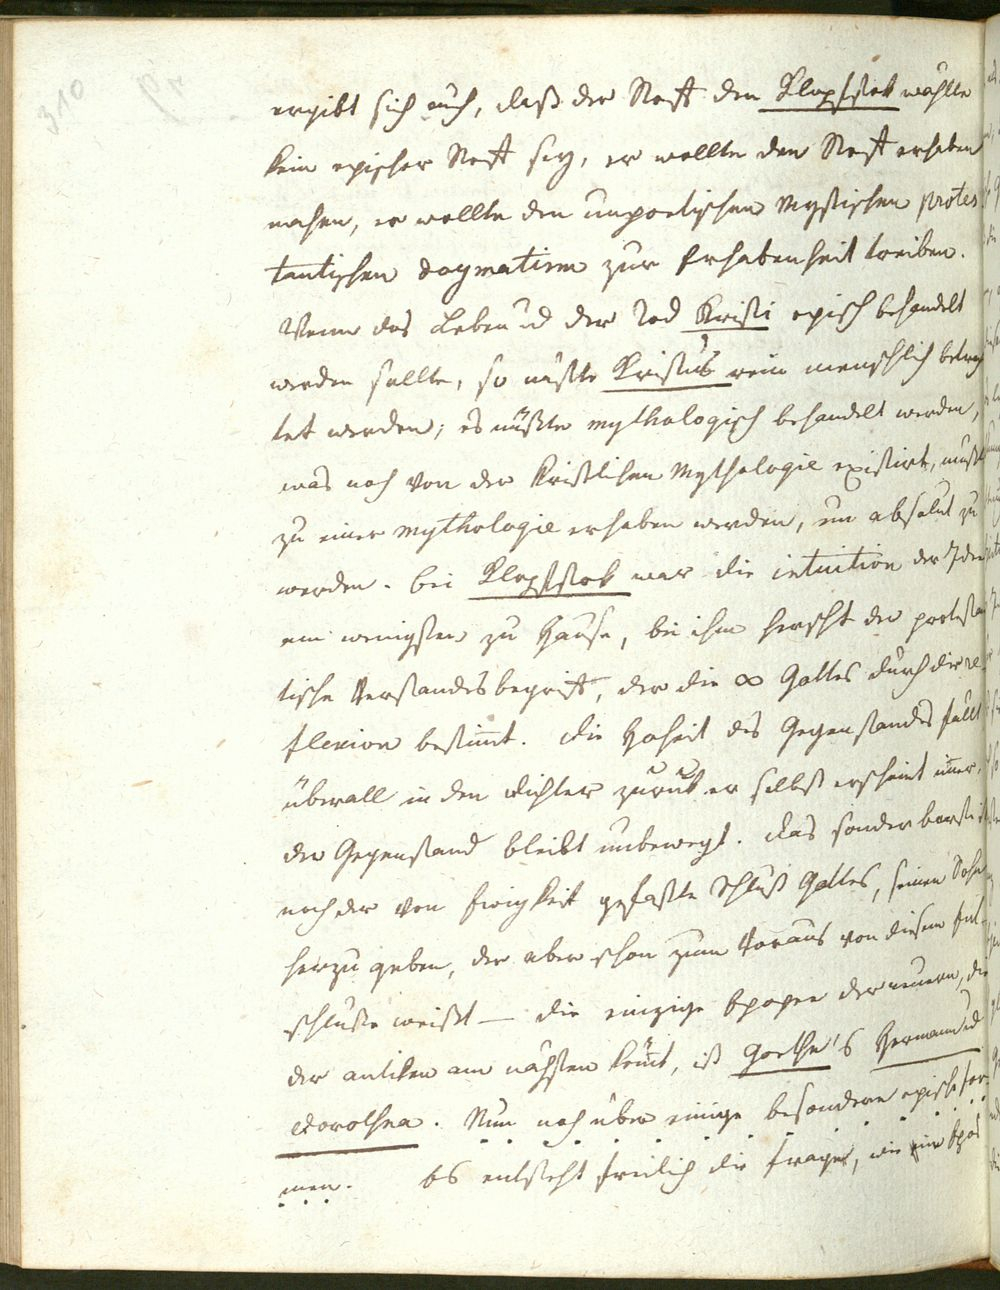 310
ergibt sich auch, daß der Stoff den Klopfstok wählte
kein epischer Stoff sey, er wollte den Stoff erhaben
machen, er wollte den unpoetischen Mystischen protes
tantischen dogmatism zur Erhabenheit treiben.
Wenn das Leben ud der Tod Kristi episch behandelt
werden sollte, so müßte Kristus rein menschlich betrach
tet werden; es müßte mythologisch behandelt werden,
was noch von der kristlichen Mythologie existirt, müßte
zu einer mythologie erhoben werden, um absolut zu
werden. bei Klopfstok war die intuition der Ideen
am wenigsten zu Hause, bei ihm herscht der protestan
tische Verstandesbegriff, der die ∞ Gottes durch die re
flexion bestimt. die Hoheit des Gegenstandes fällt
überall in den dichter zurük er selbst erscheint imer,
der Gegenstand bleibt unbewegt. das sonderbarste ist
noch der von Ewigkeit gefaßte Schluß Gottes, seinen Sohn
herzugeben, der aber schon zum Voraus von diesem Ent
schluße weißt — die einzige Epopee der neuern, die
der antiken am nächsten kömt, ist Goethe's Hermann ud
dorothea. Nun noch über einige besondere epische for
men. Es entsteht freilich die Frage, wie ein Epos